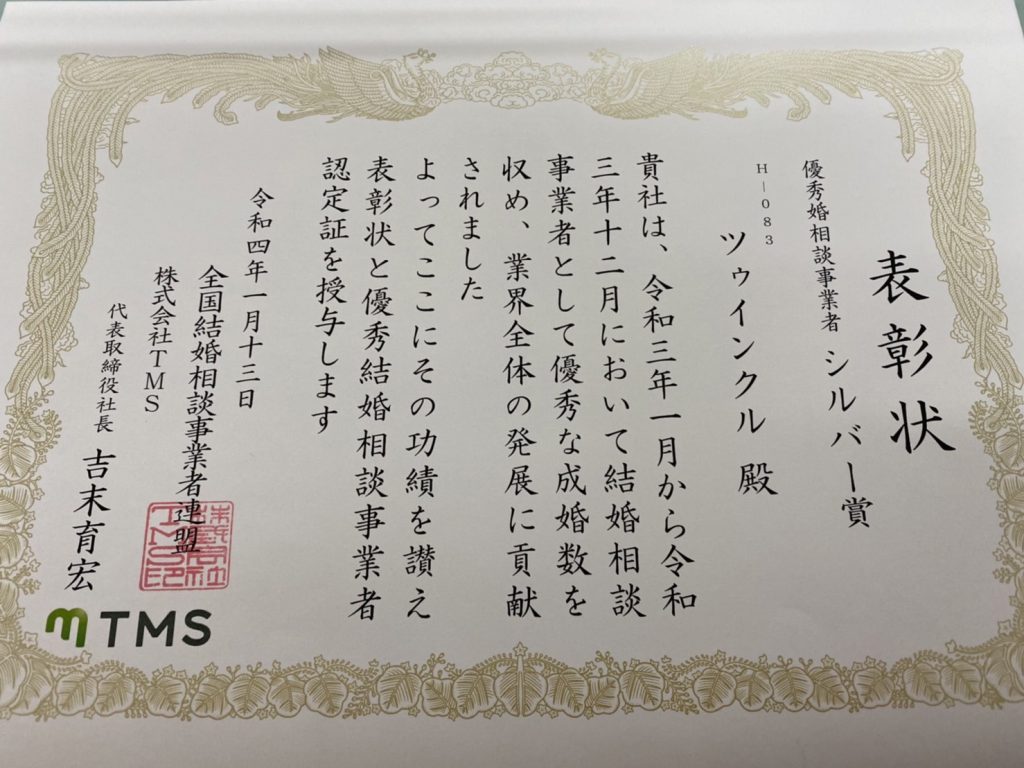 表彰状
優秀婚相談事業者 シルバー賞
H－083
ツゥインクル 殿
貴社は、令和三年一月から令和
三年十二月において結婚相談
事業者として優秀な成婚数を
収め、業界全体の発展に貢献
されました
よってここにその功績を讃え
表彰状と優秀結婚相談事業者
認定証を授与します
令和四年一月十三日
全国結婚相談事業者連盟
株式会社TMS
代表取締役社長 吉末育宏
TMS